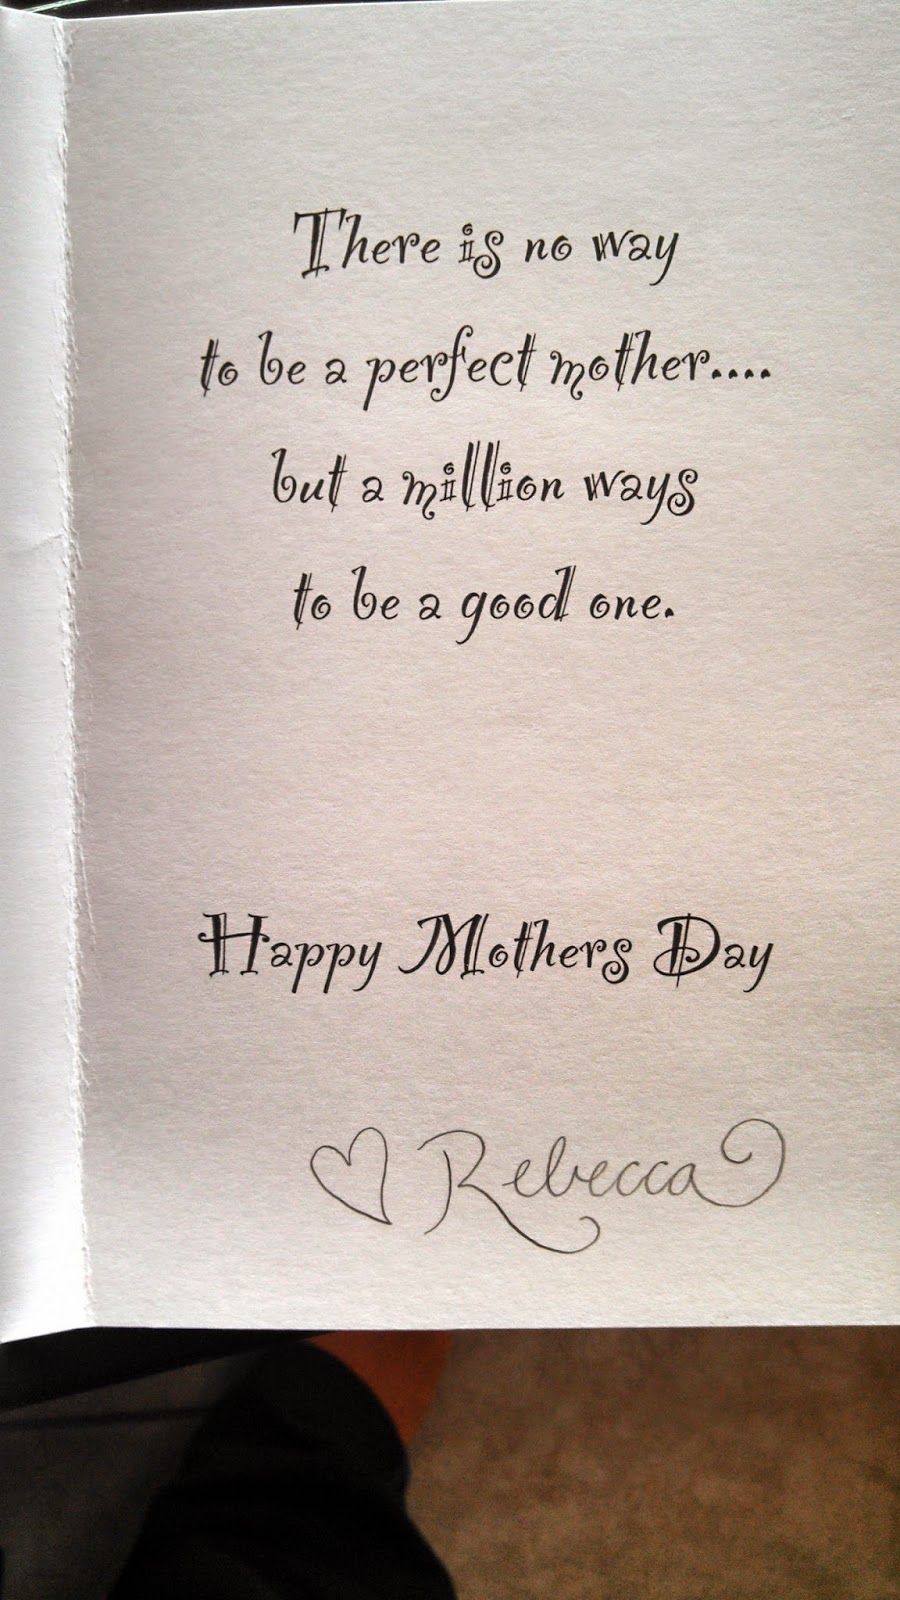 There is no way
to be a perfect mother....
but a million ways
to be a good one.
Happy Mothers Day
♡ Rebecca